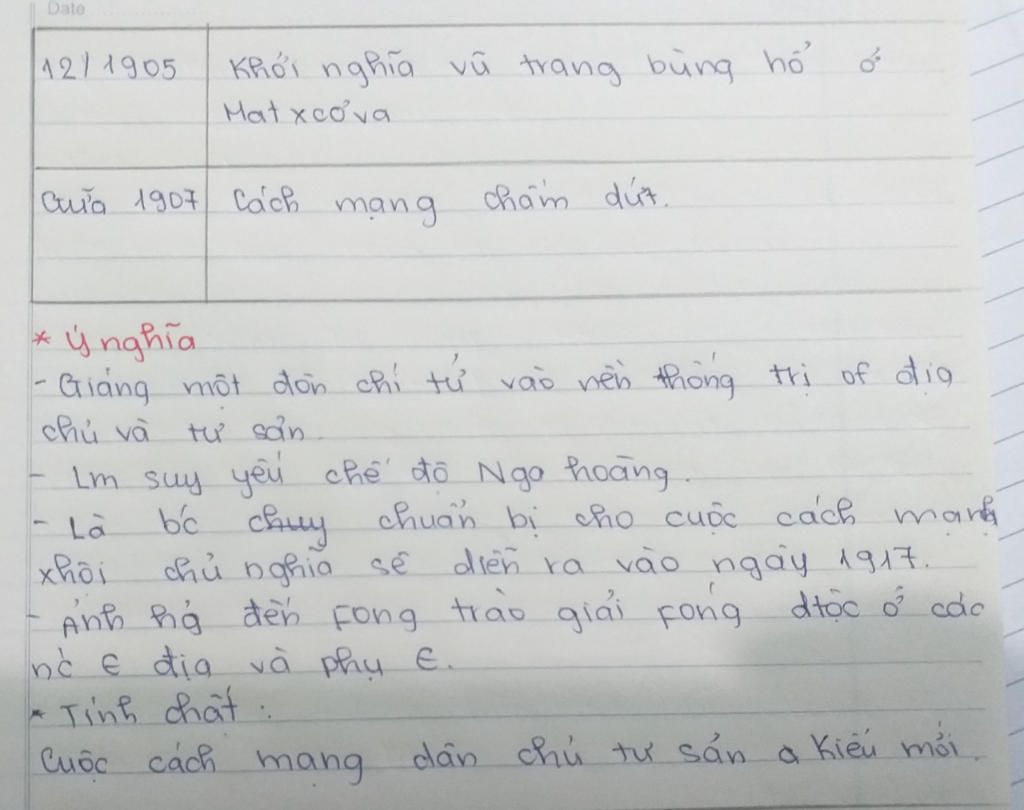 Date
12/1905 Khởi nghĩa vũ trang bùng hổ ở
Matxcơva
Giữa 1907 Cách mạng chấm dứt.
* Ý nghĩa
- Giáng một đòn chí tử vào nền thống trị of địa
chủ và tư sản.
- Lm suy yếu chế độ Nga hoàng.
- Là b'c chuy chuẩn bị cho cuộc cách mạng
xhội chủ nghĩa sẽ diễn ra vào ngày 1917.
- Ảnh hg̉ đến Fong trào giải Fóng dtộc ở các
nc̀ € địa và phụ €.
* Tính chất :
Cuộc cách mạng dân chủ tư sản a kiểu mới.